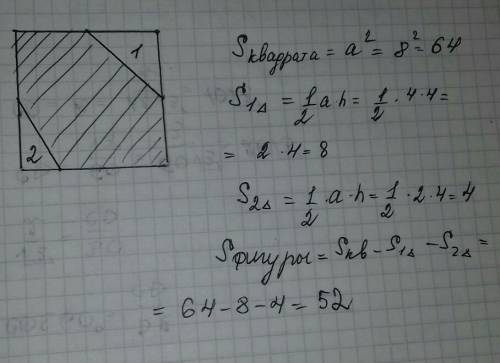 1
2
Sквадрата = a² = 8² = 64
S₁Δ = 1/2 a h = 1/2 · 4 · 4 =
= 2 · 4 = 8
S₂Δ = 1/2 · a · h = 1/2 · 2 · 4 = 4
Sфигуры = Sкв – S₁Δ – S₂Δ =
= 64 – 8 – 4 = 52